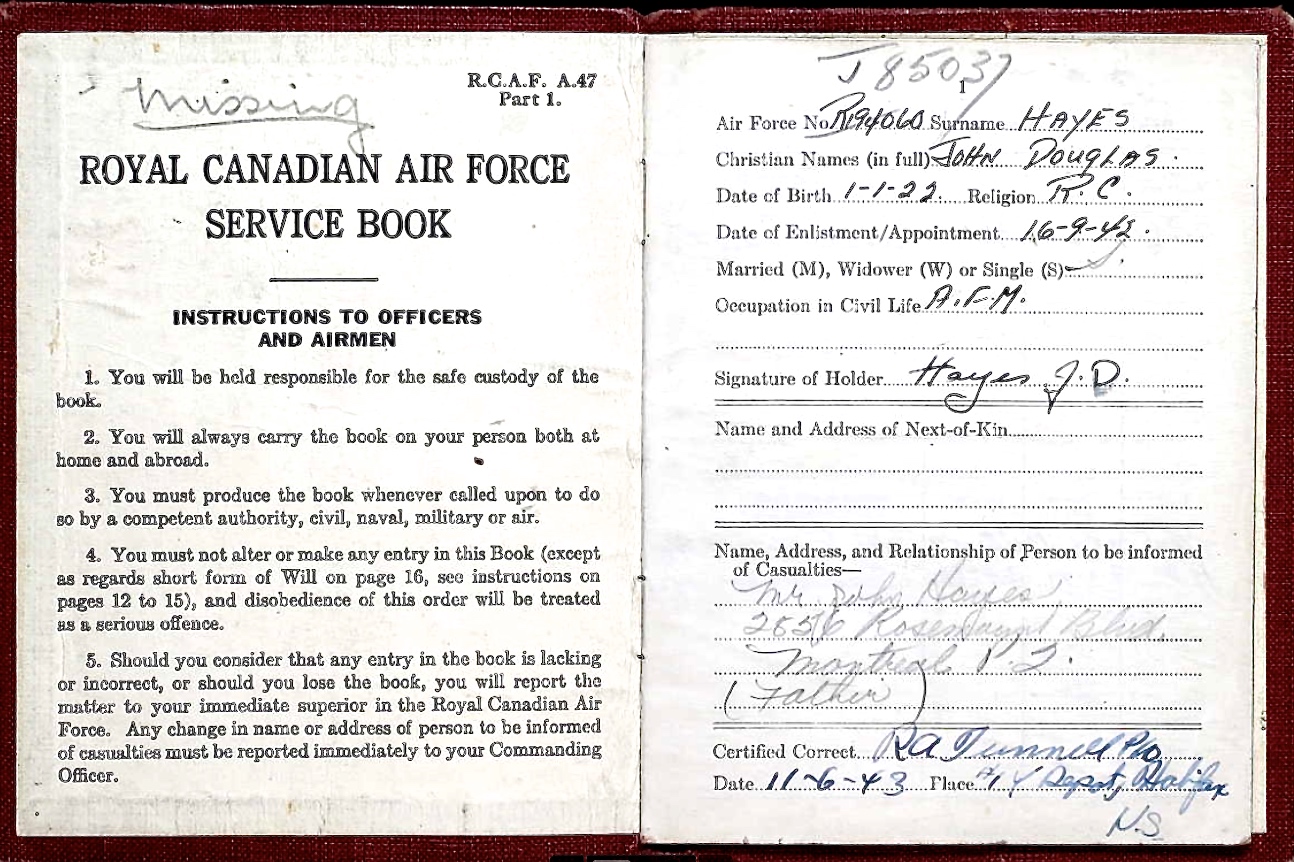 Missing
R.C.A.F. A.47
Part 1.
ROYAL CANADIAN AIR FORCE
SERVICE BOOK
INSTRUCTIONS TO OFFICERS
AND AIRMEN
1. You will be held responsible for the safe custody of the
book.
2. You will always carry the book on your person both at
home and abroad.
3. You must produce the book whenever called upon to do
so by a competent authority, civil, naval, military or air.
4. You must not alter or make any entry in this Book (except
as regards short form of Will on page 16, see instructions on
pages 12 to 15), and disobedience of this order will be treated
as a serious offence.
5. Should you consider that any entry in the book is lacking
or incorrect, or should you lose the book, you will report the
matter to your immediate superior in the Royal Canadian Air
Force. Any change in name or address of person to be informed
of casualties must be reported immediately to your Commanding
Officer.
J 85037
1
Air Force No. R94060 Surname HAYES
Christian Names (in full) JOHN DOUGLAS.
Date of Birth 1-1-22. Religion R.C.
Date of Enlistment/Appointment 16-9-42.
Married (M), Widower (W) or Single (S) S.
Occupation in Civil Life A.F.M.
Signature of Holder Hayes J.D.
Name and Address of Next-of-Kin
Name, Address, and Relationship of Person to be informed
of Casualties—
Mr John Hayes
Rosemount Blvd.
Montreal P.Q.
(Father)
Certified Correct RA Tunnell P/O
Date 11-6-43 Place #1 Y Depot, Halifax
N.S.